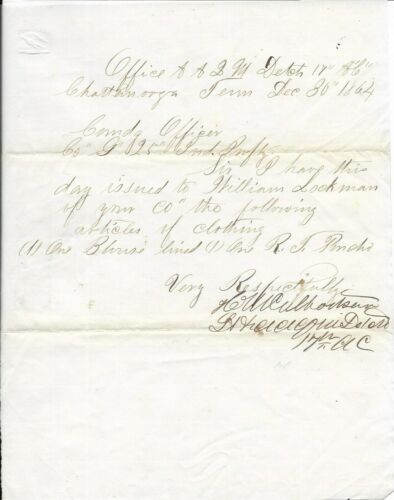 Office A A Q M Detch 17" A C"
Chattanooga Tenn Dec 30" 1864
Comdg Officer
Co" G" 125" Ind. Infty
Sir I have this
day issued to William Lockman
of your Co" the following
articles of clothing
(1) One Blouse lined (1) One R. T. Poncho
Very Respectfully
Culbertson
17th A C